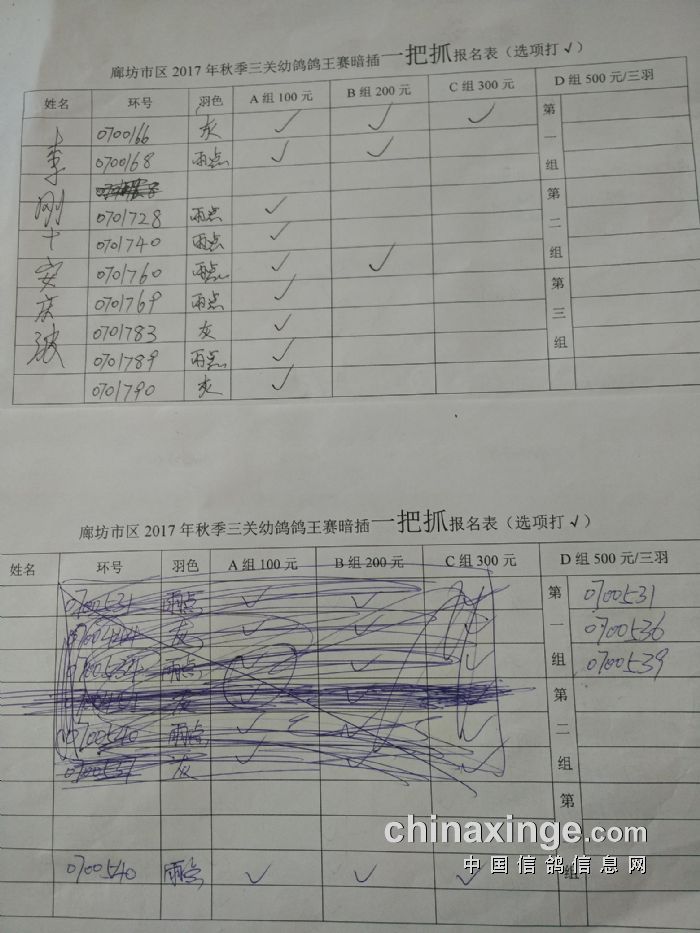 廊坊市区 2017 年秋季三关幼鸽鸽王赛暗插一把抓报名表（选项打 √）
姓名 环号 羽色 A 组 100 元 B 组 200 元 C 组 300 元 D 组 500 元/三羽
0700166 灰 ✓ ✓ ✓ 第
0700168 雨点 ✓ ✓ 一
组
0701728 雨点 ✓ 第
0701740 雨点 ✓ 二
0701760 雨点 ✓ ✓ 组
0701769 雨点 ✓ 第
0701783 灰 ✓ 三
0701789 雨点 ✓ 组
0701790 灰 ✓
李刚十安庆波
廊坊市区 2017 年秋季三关幼鸽鸽王赛暗插一把抓报名表（选项打 √）
姓名 环号 羽色 A 组 100 元 B 组 200 元 C 组 300 元 D 组 500 元/三羽
0700531 雨点 ✓ ✓ ✓ 第 0700531
灰 ✓ ✓ ✓ 一 0700536
雨点 ✓ ✓ ✓ 组 0700539
灰 ✓ ✓ 第
0700540 雨点 ✓ ✓ ✓ 二
灰 ✓ ✓ ✓ 组
第
0700540 雨点 ✓ ✓ ✓ 组
chinaxinge.com
中国信鸽信息网